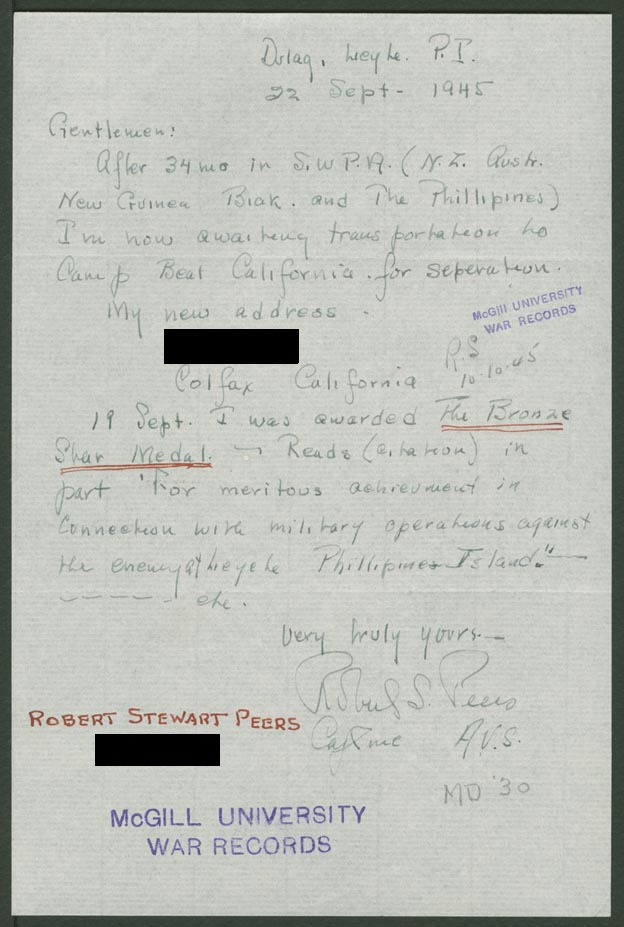 Dulag, Leyte. P.I.
22 Sept - 1945
Gentlemen:
After 34 mo in S.W.P.A. (N.Z. Austr.
New Guinea Biak. and The Phillipines)
I'm now awaiting transportation to
Camp Beal California. for seperation.
My new address.
McGILL UNIVERSITY
WAR RECORDS
R.S
10-10-45
Colfax California
19 Sept. I was awarded The Bronze
Star Medal. — Reads (citation) in
part "For meritous achievment in
connection with military operations against
the enemy at Leyte Phillipines Island." —
— — — — — etc.
Very truly yours —
Robert S. Peers
ROBERT STEWART PEERS
Capt MC A.U.S.
MD '30
McGILL UNIVERSITY
WAR RECORDS